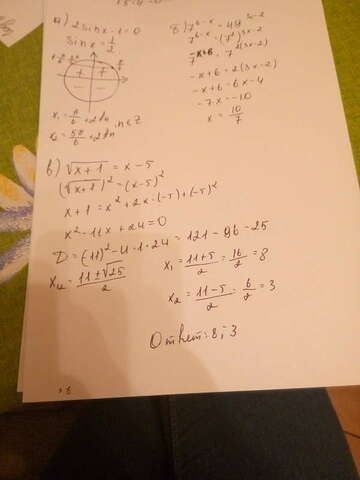 а) 2sinx-1=0
sinx=1/2
x₁=π/6+2πn
, n∈Z
x₂=5π/6+2πn
б) 7^(6-x) = 49^(3x-2)
7^(6-x) = (7²)^(3x-2)
7^(-x+6) = 7^(2(3x-2))
-x+6 = 2(3x-2)
-x+6 = 6x-4
-7x = -10
x = 10/7
в) √(x+1) = x-5
(√(x+1))² = (x-5)²
x+1 = x²+2x·(-5)+(-5)²
x²-11x+24=0
D=(11)²-4·1·24=121-96=25
x₁,₂=(11±√25)/2
x₁=(11+5)/2=16/2=8
x₂=(11-5)/2=6/2=3
Ответ: 8; 3